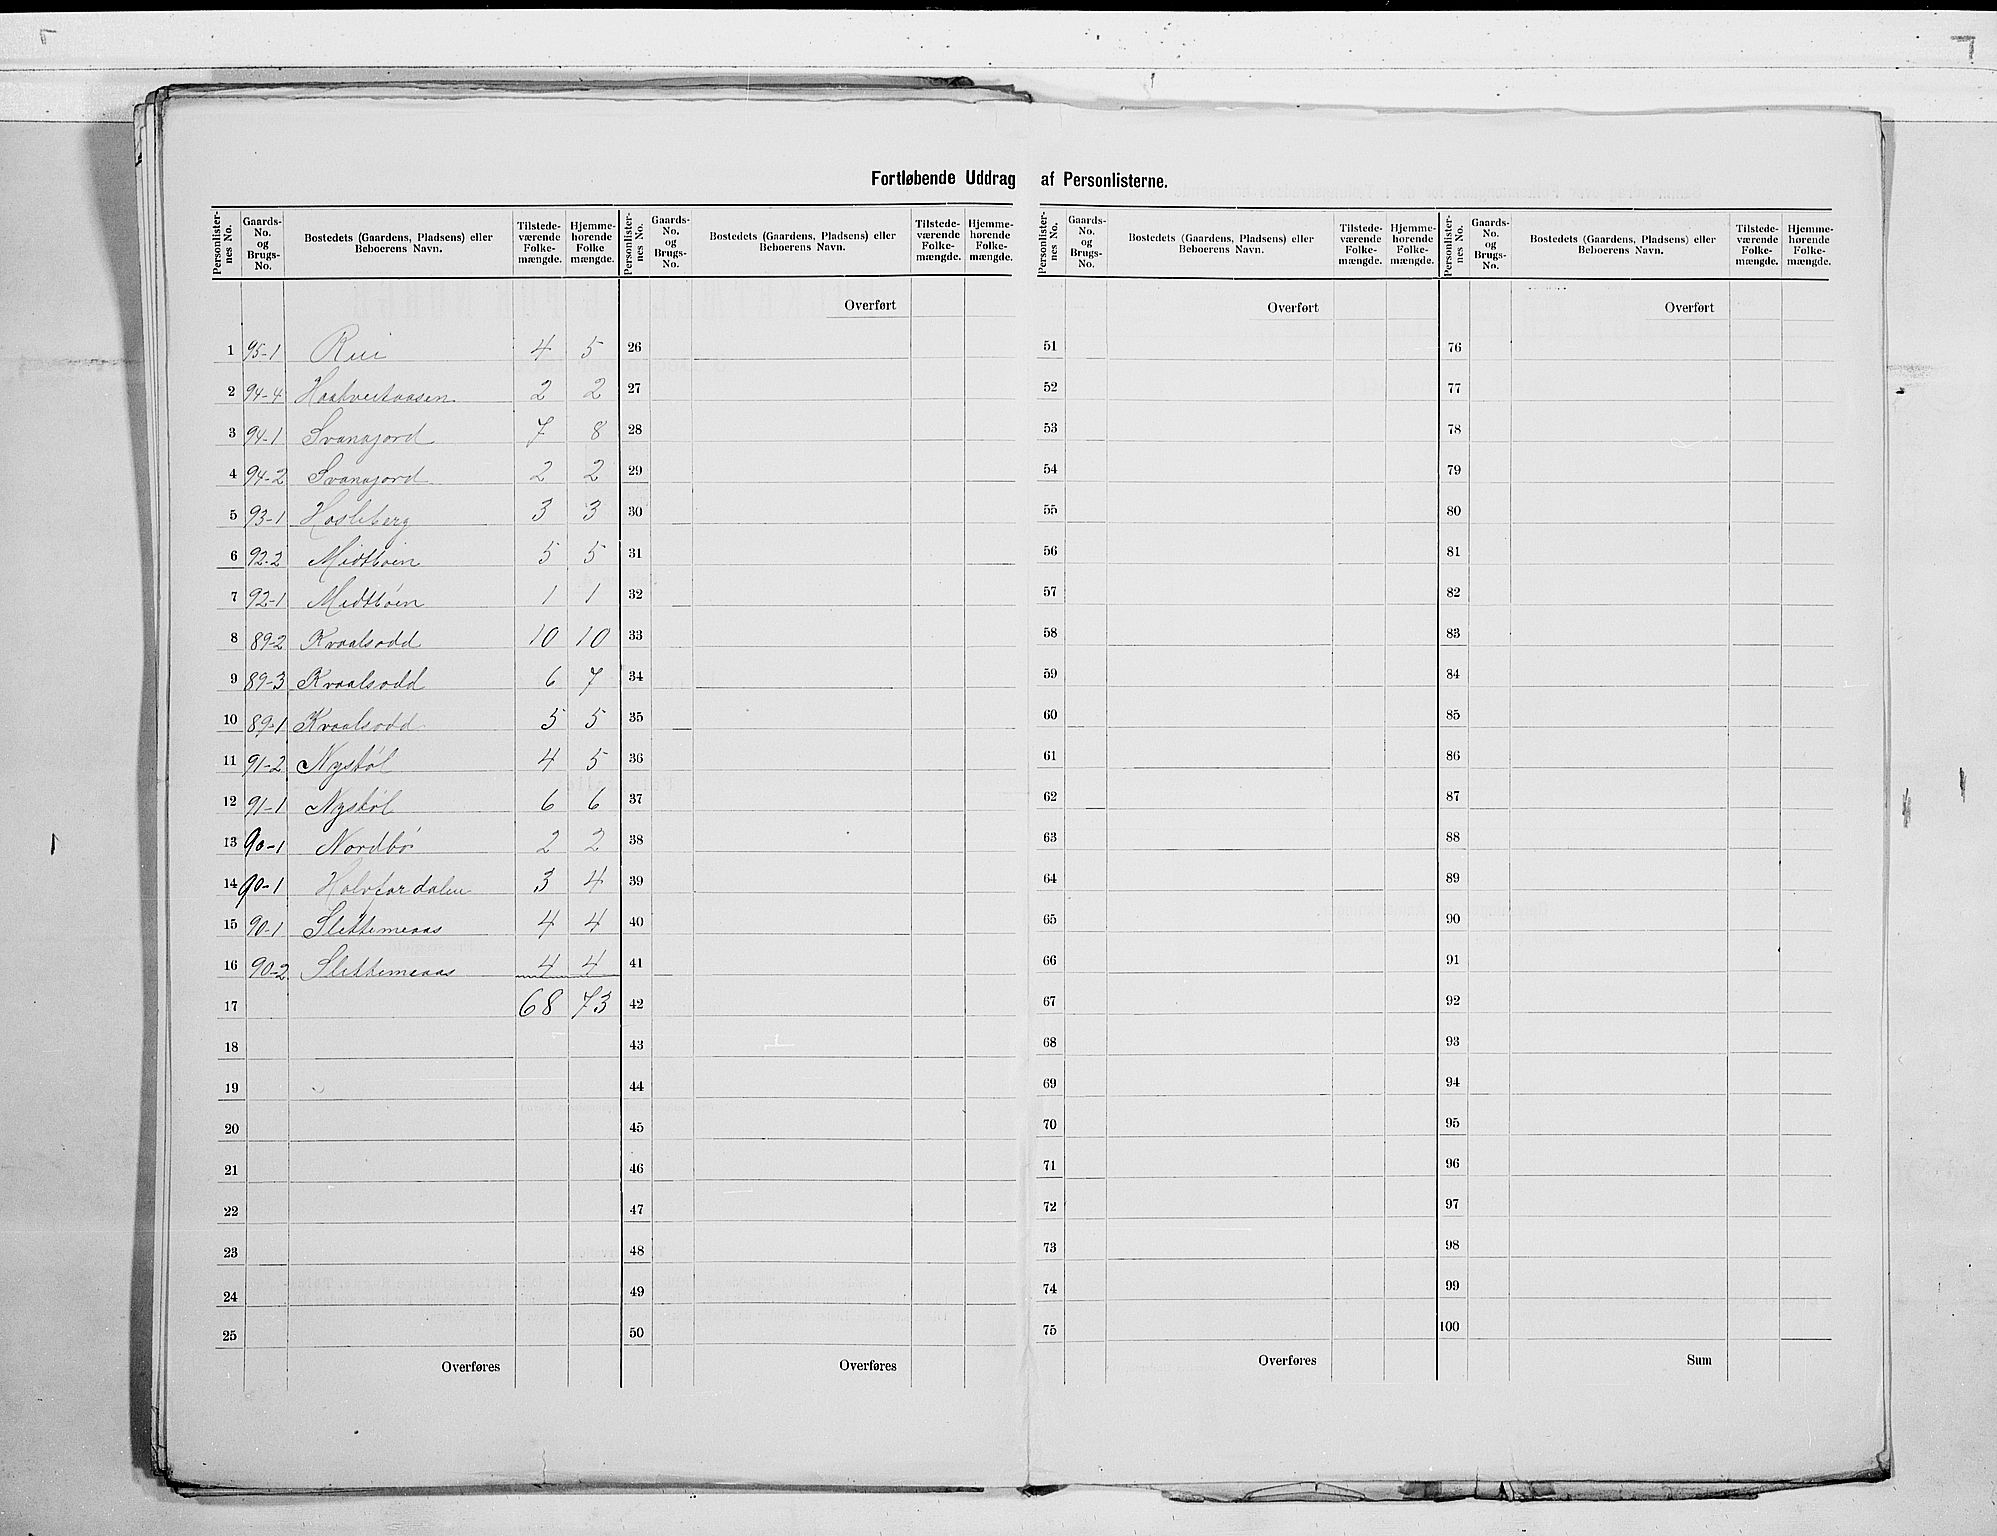 Fortløbende Uddrag af Personlisterne.
Personlister-nes No. | Gaards-No. og Brugs-No. | Bostedets (Gaardens, Pladsens) eller Beboerens Navn. | Tilstede-værende Folke-mængde. | Hjemme-hørende Folke mængde.
1 95-1 Rui 4 5
2 94-4 Haatveitaasen 2 2
3 94-1 Svanajord 7 8
4 94-2 Svanajord 2 2
5 93-1 Hasleberg 3 3
6 92-2 Midtbøen 5 5
7 92-1 Midtbøen 1 1
8 89-2 Kvaalsodd 10 10
9 89-3 Kvaalsodd 6 7
10 89-1 Kvaalsodd 5 5
11 91-2 Nystøl 4 5
12 91-1 Nystøl 6 6
13 90-1 Nordbø 2 2
14 90-1 Halvfardalen 3 4
15 90-1 Slettemeaas 4 4
16 90-2 Slettemeaas 4 4
17 68 73
18
19
20
21
22
23
24
25
Overføres
Personlister-nes No. | Gaards-No. og Brugs-No. | Bostedets (Gaardens, Pladsens) eller Beboerens Navn. | Tilstede-værende Folke-mængde. | Hjemme-hørende Folke-mængde.
Overført
26
27
28
29
30
31
32
33
34
35
36
37
38
39
40
41
42
43
44
45
46
47
48
49
50
Overføres
Personlister-nes No. | Gaards-No. og Brugs-No. | Bostedets (Gaardens, Pladsens) eller Beboerens Navn. | Tilstede-værende Folke-mængde. | Hjemme-hørende Folke-mængde.
Overført
51
52
53
54
55
56
57
58
59
60
61
62
63
64
65
66
67
68
69
70
71
72
73
74
75
Overføres
Personlister-nes No. | Gaards-No. og Brugs-No. | Bostedets (Gaardens, Pladsens) eller Beboerens Navn. | Tilstede-værende Folke-mængde. | Hjemme-hørende Folke-mængde.
Overført
76
77
78
79
80
81
82
83
84
85
86
87
88
89
90
91
92
93
94
95
96
97
98
99
100
Sum